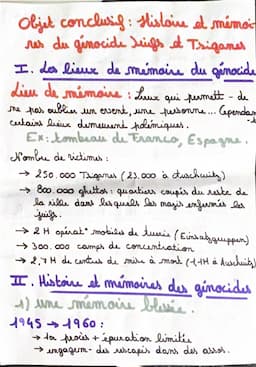 Objet conclusif : Histoire et mémoi-
res du génocide Juifs et Tsiganes
I. Les lieux de mémoire du génocide
Lieu de mémoire : Lieux qui permett - de
ne pas oublier un event, une personne... Cependant
certains lieux demeurent polémiques.
Ex : tombeau de Franco, Espagne.
Nombre de victimes :
→ 250.000 Tsiganes (23.000 à Auschwitz)
→ 800.000 ghettos : quartiers coupés du reste de
la ville dans lesquels les nazis enfermés les
juifs.
→ 2 M opérat° mobiles de tuerie (Einsatzgruppen)
→ 300.000 camps de concentration
→ 2,7 M de centres de mise à mort (1,1M à Auschwitz)
II. Histoire et mémoires des génocides
1) une mémoire blessée.
1945 → 1960 :
→ 1er procès + épuration limitée
→ engagem- des rescapés dans des assos.